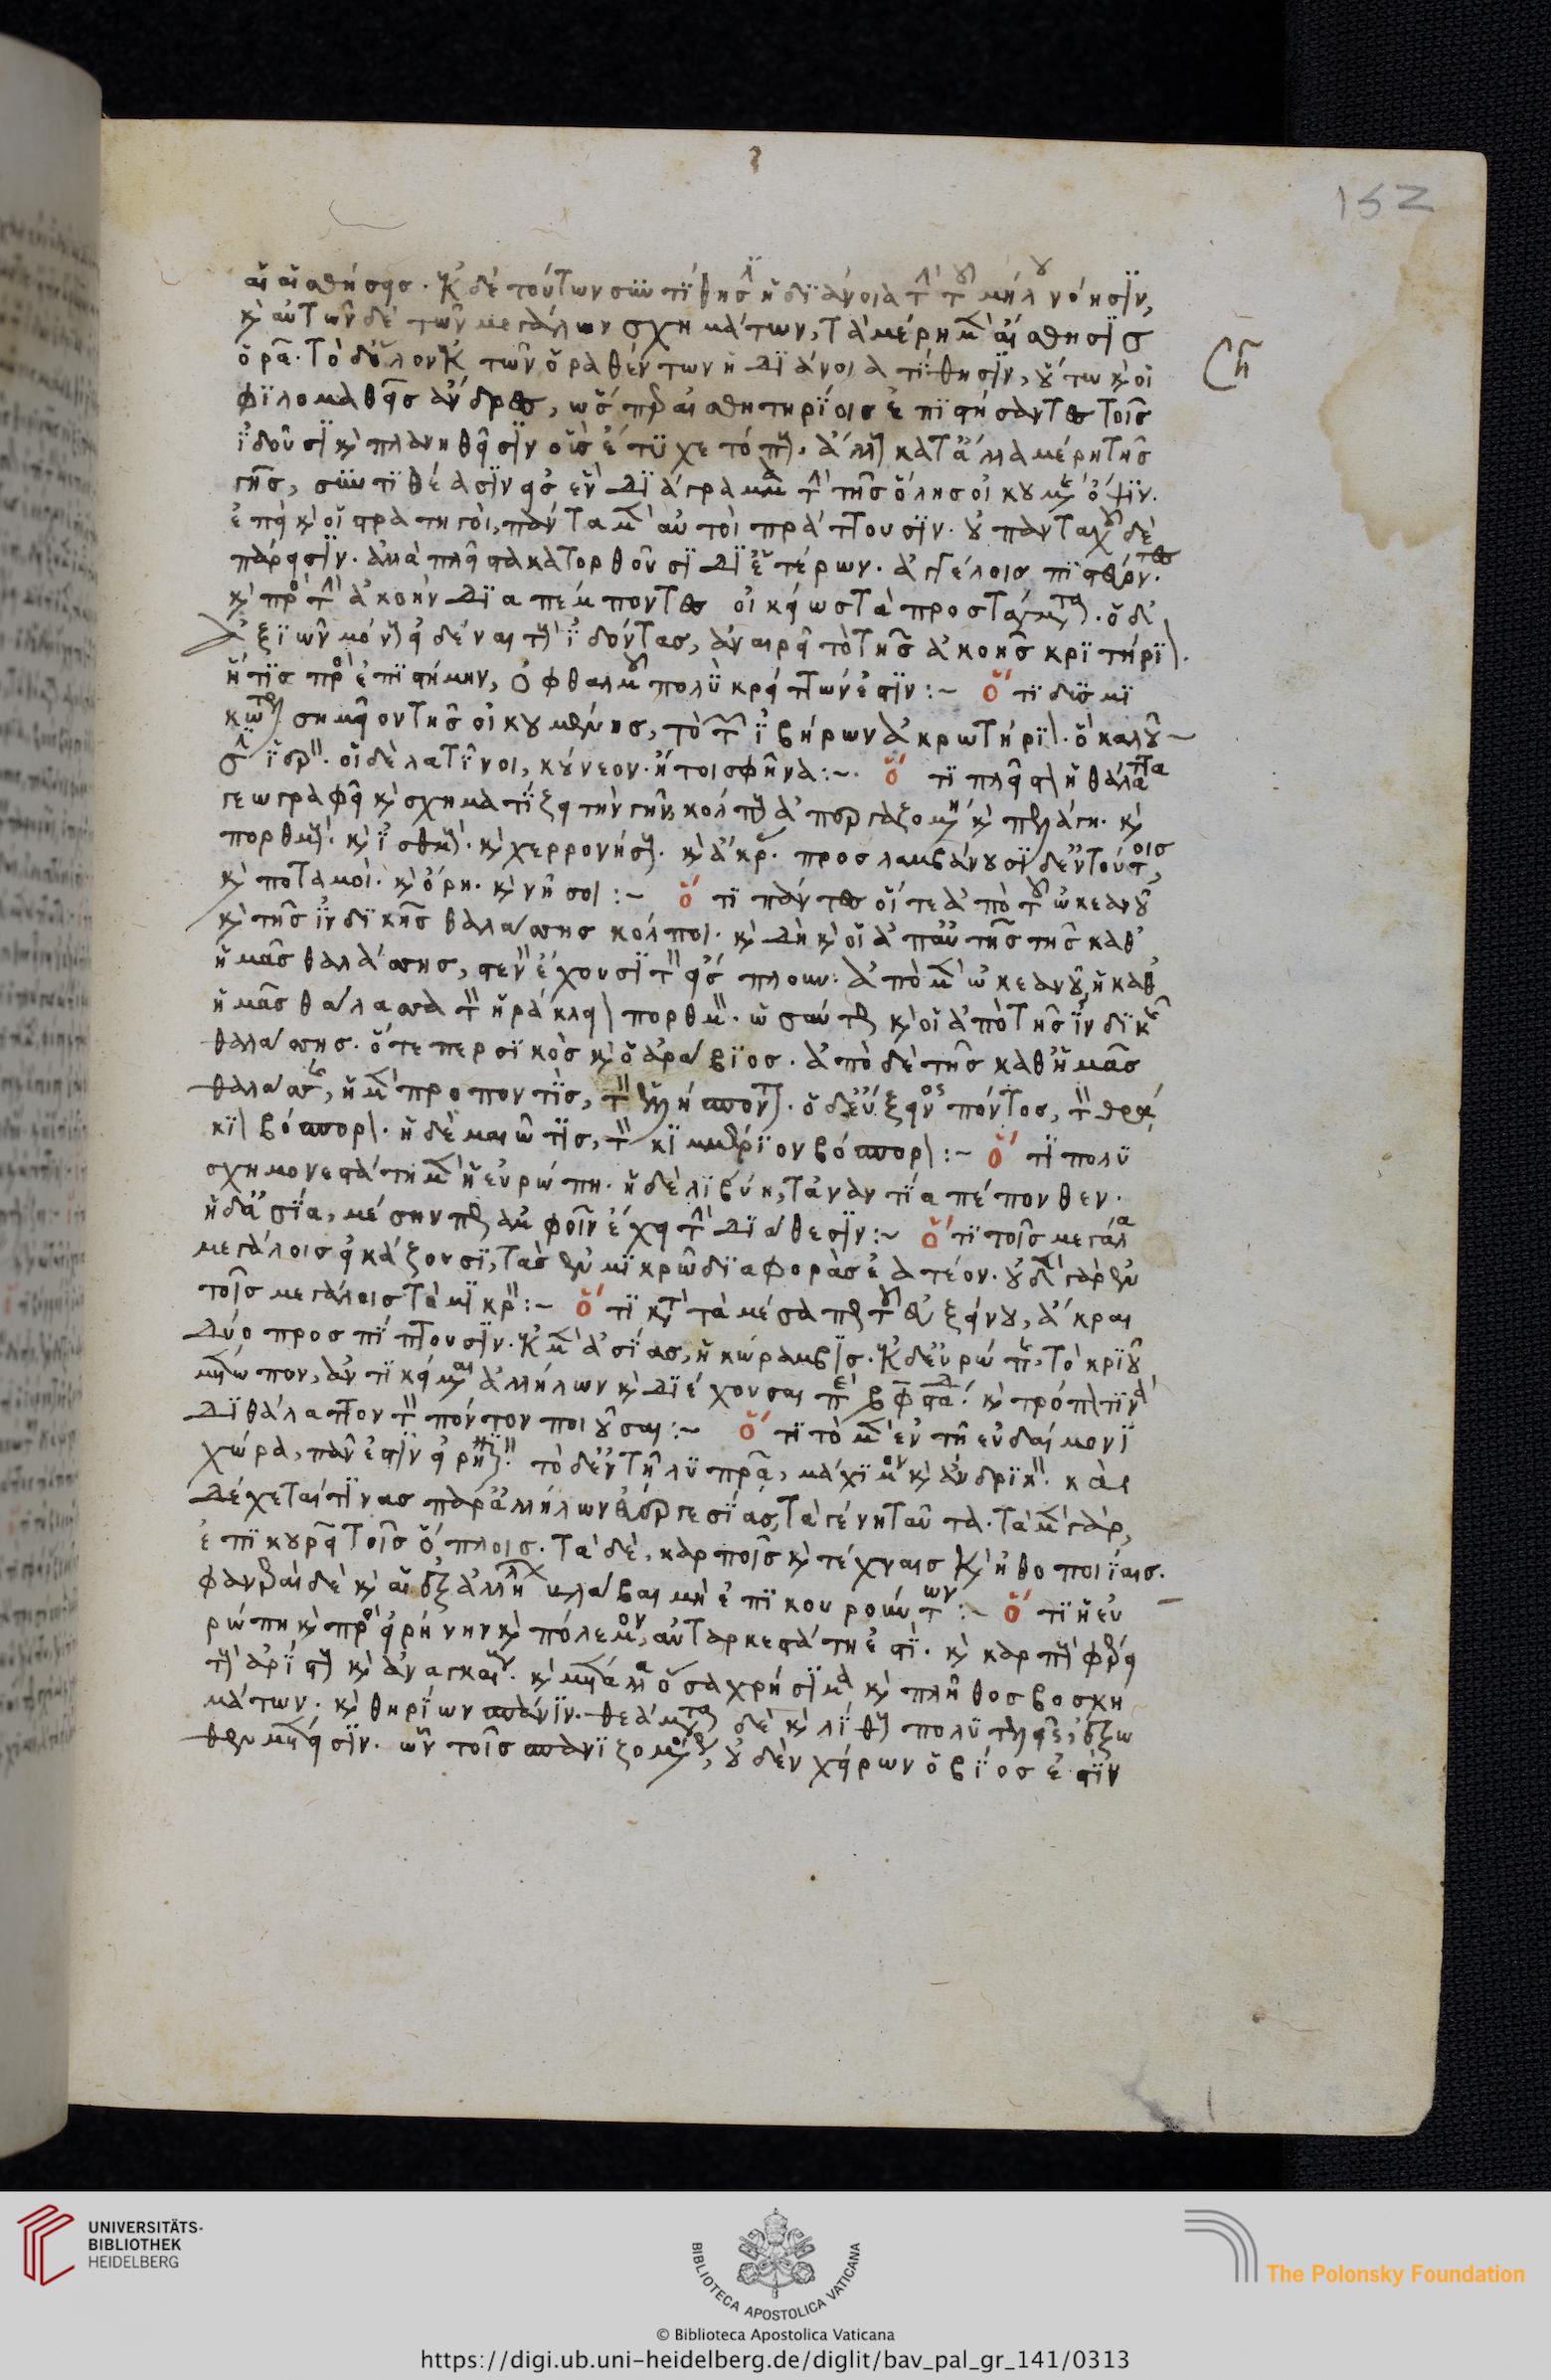 αἱ αἰσθήσεις. ἐκ δὲ τούτων συντίθησιν ἡ διάνοια τὴν τοῦ μήλου νόησιν,
καὶ αὐτῶν δὲ τῶν μεγάλων σχημάτων, τὰ μέρη μὲν αἴσθησις
ὁρᾶ. τὸ δ' ὅλον ἐκ τῶν ὁραθέντων ἡ διάνοια τίθησιν, οὕτω καὶ οἱ
φιλομαθεῖς ἄνδρες, ὥσπερ αἰσθητηρίοις ἐπιστήσαντες τοῖς
ἰδοῦσι καὶ πλανηθεῖσιν οὓς ἔτυχε τόπους. ἄλλοις κατ' ἄλλα μέρη τῆς
γῆς, συντιθέασιν εἰς ἓν διάγραμμα τὴν τῆς ὅλης οἰκουμένης ὄψιν.
ἐπεὶ καὶ οἱ στρατηγοὶ, πάντα μὲν αὐτοὶ πράττουσιν. οὐ πανταχοῦ δὲ
πάρεισιν. ἀλλὰ πλεῖστα κατορθοῦσι δι' ἑτέρων. ἀγγέλοις πιστεύοντες.
καὶ πρὸς τὴν ἀκοὴν διαπέμποντες οἰκείως τὰ προστάγματα. ὁ δ'
ἀξιῶν μόνους εἰδέναι τοὺς ἰδόντας, ἀναιρεῖ τὸ τῆς ἀκοῆς κριτήριον.
ἥτις πρὸς ἐπιστήμην, ὀφθαλμοῦ πολὺ κρείττων ἐστίν :~ ὅτι δυσμι
κώτατον σημεῖον τῆς οἰκουμένης, τὸ τῶν ἰβήρων ἀκρωτήριον. ὃ καλοῦ~
σιν ἱερόν. οἱ δὲ λατῖνοι, κούνεον. ἤτοι σφῆνα :~ ὅτι πλεῖστον ἡ θάλαττα
γεωγραφεῖ καὶ σχηματίζει τὴν γῆν, κόλπους ἀπεργαζομένη καὶ πελάγη. καὶ
πορθμούς. καὶ ἰσθμούς. καὶ χερρονήσους. καὶ ἄκρας. προσλαμβάνουσι δ' ἐν τούτοις,
καὶ ποταμοί. καὶ ὄρη. καὶ νῆσοι :~ ὅτι πάντες οἵ τε ἀπὸ τοῦ ὠκεανοῦ
καὶ τῆς ἰνδικῆς θαλάσσης κόλποι. καὶ δὴ καὶ οἱ ἀπ' αὐτῆς τῆς καθ'
ἡμᾶς θαλάσσης, στενὸν ἔχουσι τὸν εἴσπλουν. ἀπὸ μὲν ὠκεανοῦ, ἡ καθ'
ἡμᾶς θάλασσα τὸν ἡράκλειον πορθμόν. ὡσαύτως καὶ οἱ ἀπὸ τῆς ἰνδικῆς
θαλάσσης. ὅ τε περσικὸς καὶ ὁ ἀράβιος. ἀπὸ δὲ τῆς καθ' ἡμᾶς
θαλάσσης, ἡ μὲν προποντὶς, τὸν ἑλλήσποντον. ὁ δ' εὔξεινος πόντος, τὸν θρᾴ
κιον βόσπορον. ἡ δὲ μαιῶτις, τὸν κιμμέριον βόσπορον :~ ὅτι πολυ
σχημονεστάτη μὲν ἡ εὐρώπη. ἡ δὲ λιβύη, τἀναντία πέπονθεν.
ἡ δ' ἀσία, μέσην πως ἀμφοῖν ἔχει τὴν διάθεσιν :~ ὅτι τοῖς μεγάλα
μεγάλοις εἰκάζουσι, τὰς ἐν μικρῶ διαφορὰς ἐατέον. οὐδὲν γὰρ ἐν
τοῖς μεγάλοις τὰ μικρά :~ ὅτι κατὰ τὰ μέσα πως τοῦ εὐξείνου, ἄκραι
δύο προσπίπτουσιν. ἐκ μὲν ἀσίας, ἡ κώραμβις. ἐκ δ' εὐρώπης, τὸ κριοῦ
μέτωπον, ἀντικείμεναι ἀλλήλων καὶ διέχουσαι περὶ βφ στάδια. καὶ τρόπον τινὰ
διθάλαττον τὸν πόντον ποιοῦσαι :~ ὅτι τὸ μὲν ἐν τῆ εὐδαίμονι
χώρα, πᾶν ἐστὶν εἰρηνικόν. τὸ δ' ἐν τῆ λυπρᾶ, μάχιμον καὶ ἀνδρικόν. καὶ
δέχεταί τινας παρ' ἀλλήλων εὐεργεσίας, τὰ γένη ταῦτα. τὰ μὲν γὰρ,
ἐπικουρεῖ τοῖς ὅπλοις. τὰ δὲ, καρποῖς καὶ τέχναις καὶ ἠθοποιίαις.
φανεραὶ δὲ καὶ αἱ ἐξ ἀλλήλων βλάβαι μὴ ἐπικουρούντων :~ ὅτι ἡ εὐ
ρώπη καὶ πρὸς εἰρήνην καὶ πόλεμον, αὐταρκεστάτη ἐστί. καὶ καρποὺς φέρει
τοὺς ἀρίστους καὶ ἀναγκαίους. καὶ μέταλλα ὅσα χρήσιμα καὶ πλῆθος βοσκη
μάτων. καὶ θηρίων σπάνιν. θεάματα δὲ καὶ λίθους πολυτελεῖς, ἔξω
θεν μέτεισιν. ὧν τοῖς σπανιζομένοις, οὐδὲν χείρων ὁ βίος ἐστὶν
152
UNIVERSITÄTS-
BIBLIOTHEK
HEIDELBERG
BIBLIOTECA APOSTOLICA VATICANA
The Polonsky Foundation
© Biblioteca Apostolica Vaticana
https://digi.ub.uni-heidelberg.de/diglit/bav_pal_gr_141/0313